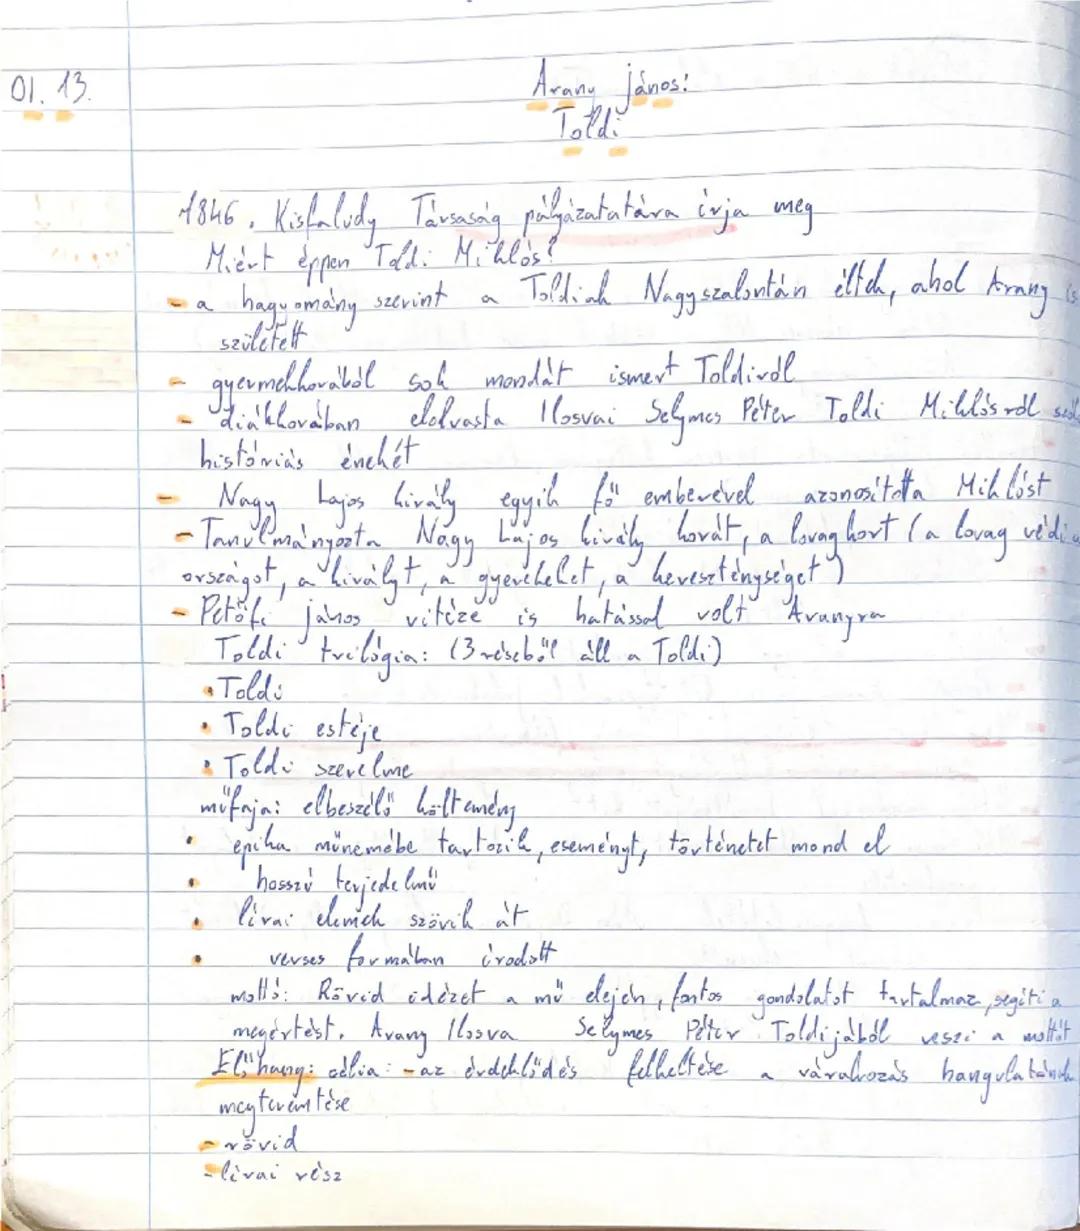 01. 13.
Arany János:
Toldi
1846. Kisfaludy Társaság pályázatatára írja meg
Miért éppen Toldi Miklós?
- a hagyomány szerint a Toldiak Nagyszalontán éltek, ahol Arany is
született
- gyermekkorából sok mondát ismert Toldiról
- diákkorában elolvasta Ilosvai Selymes Péter Toldi Miklósról
históriás énekét
- Nagy Lajos király egyik fő emberével azonosította Miklóst
- Tanulmányozta Nagy Lajos király korát, a lovagkort (a lovag védi
országot, a királyt, a gyerekeket, a kereszténységet)
- Petőfi János vitéze is hatással volt Aranyra
Toldi trilógia: (3 részből áll a Toldi)
• Toldi
• Toldi estéje
• Toldi szerelme
műfaja: elbeszélő költemény
• epika műnemébe tartozik, eseményt, történetet mond el
• hosszú terjedelmű
• lírai elemek szövik át
• verses formában íródott
mottó: Rövid idézet a mű elején, fontos gondolatot tartalmaz, segíti a
megértést. Arany Ilosva Selymes Péter Toldijából veszi a mottót
Előhang: célja: - az érdeklődés felkeltése a várakozás hangulatának
megteremtése
- rövid
- lírai rész